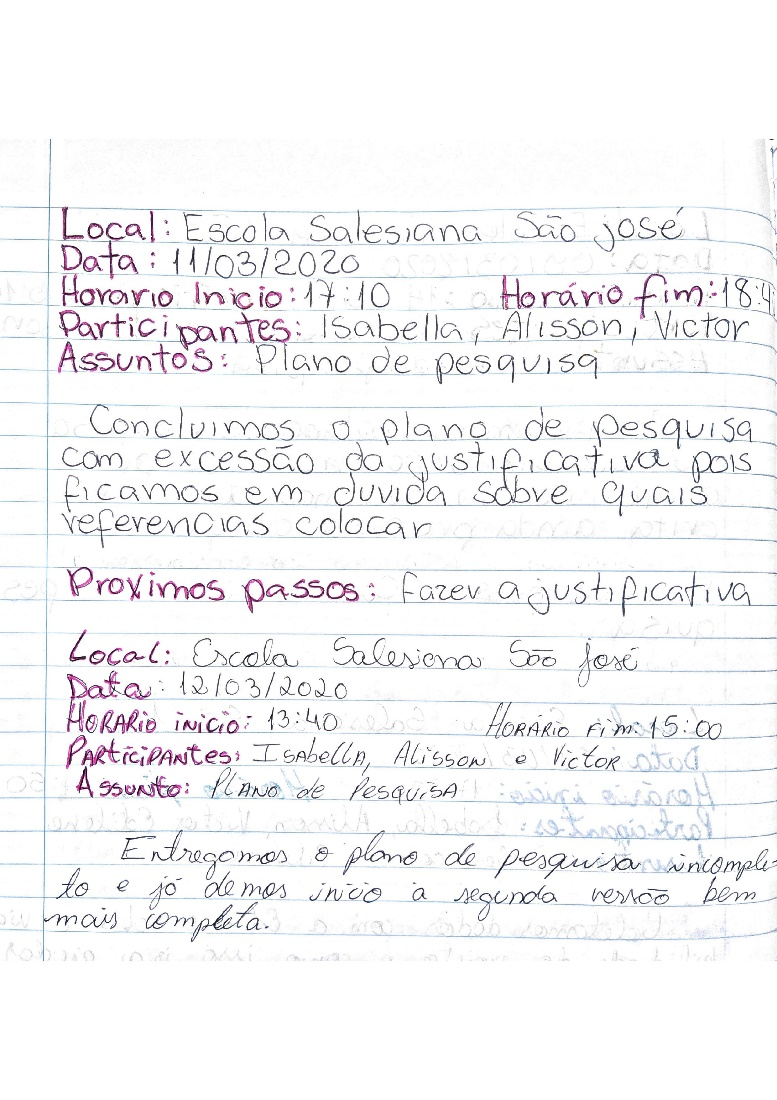 Local: Escola Salesiana São josé
Data: 11/03/2020
Horario Inicio: 17:10 Horário fim: 18:4
Participantes: Isabella, Alisson, Victor
Assuntos: Plano de pesquisa
Concluimos o plano de pesquisa
com excessão da justificativa pois
ficamos em duvida sobre quais
referencias colocar
Proximos passos: fazer a justificativa
Local: Escola Salesiana São josé
Data: 12/03/2020
HORARIO inicio: 13:40 HORÁRIO fim: 15:00
PARticiPANtes: ISABELLA, Alisson e Victor
Assunto: PLANO de PesquiSA
Entregamos o plano de pesquisa incomple-
to e já demos início a segunda versão bem
mais completa.